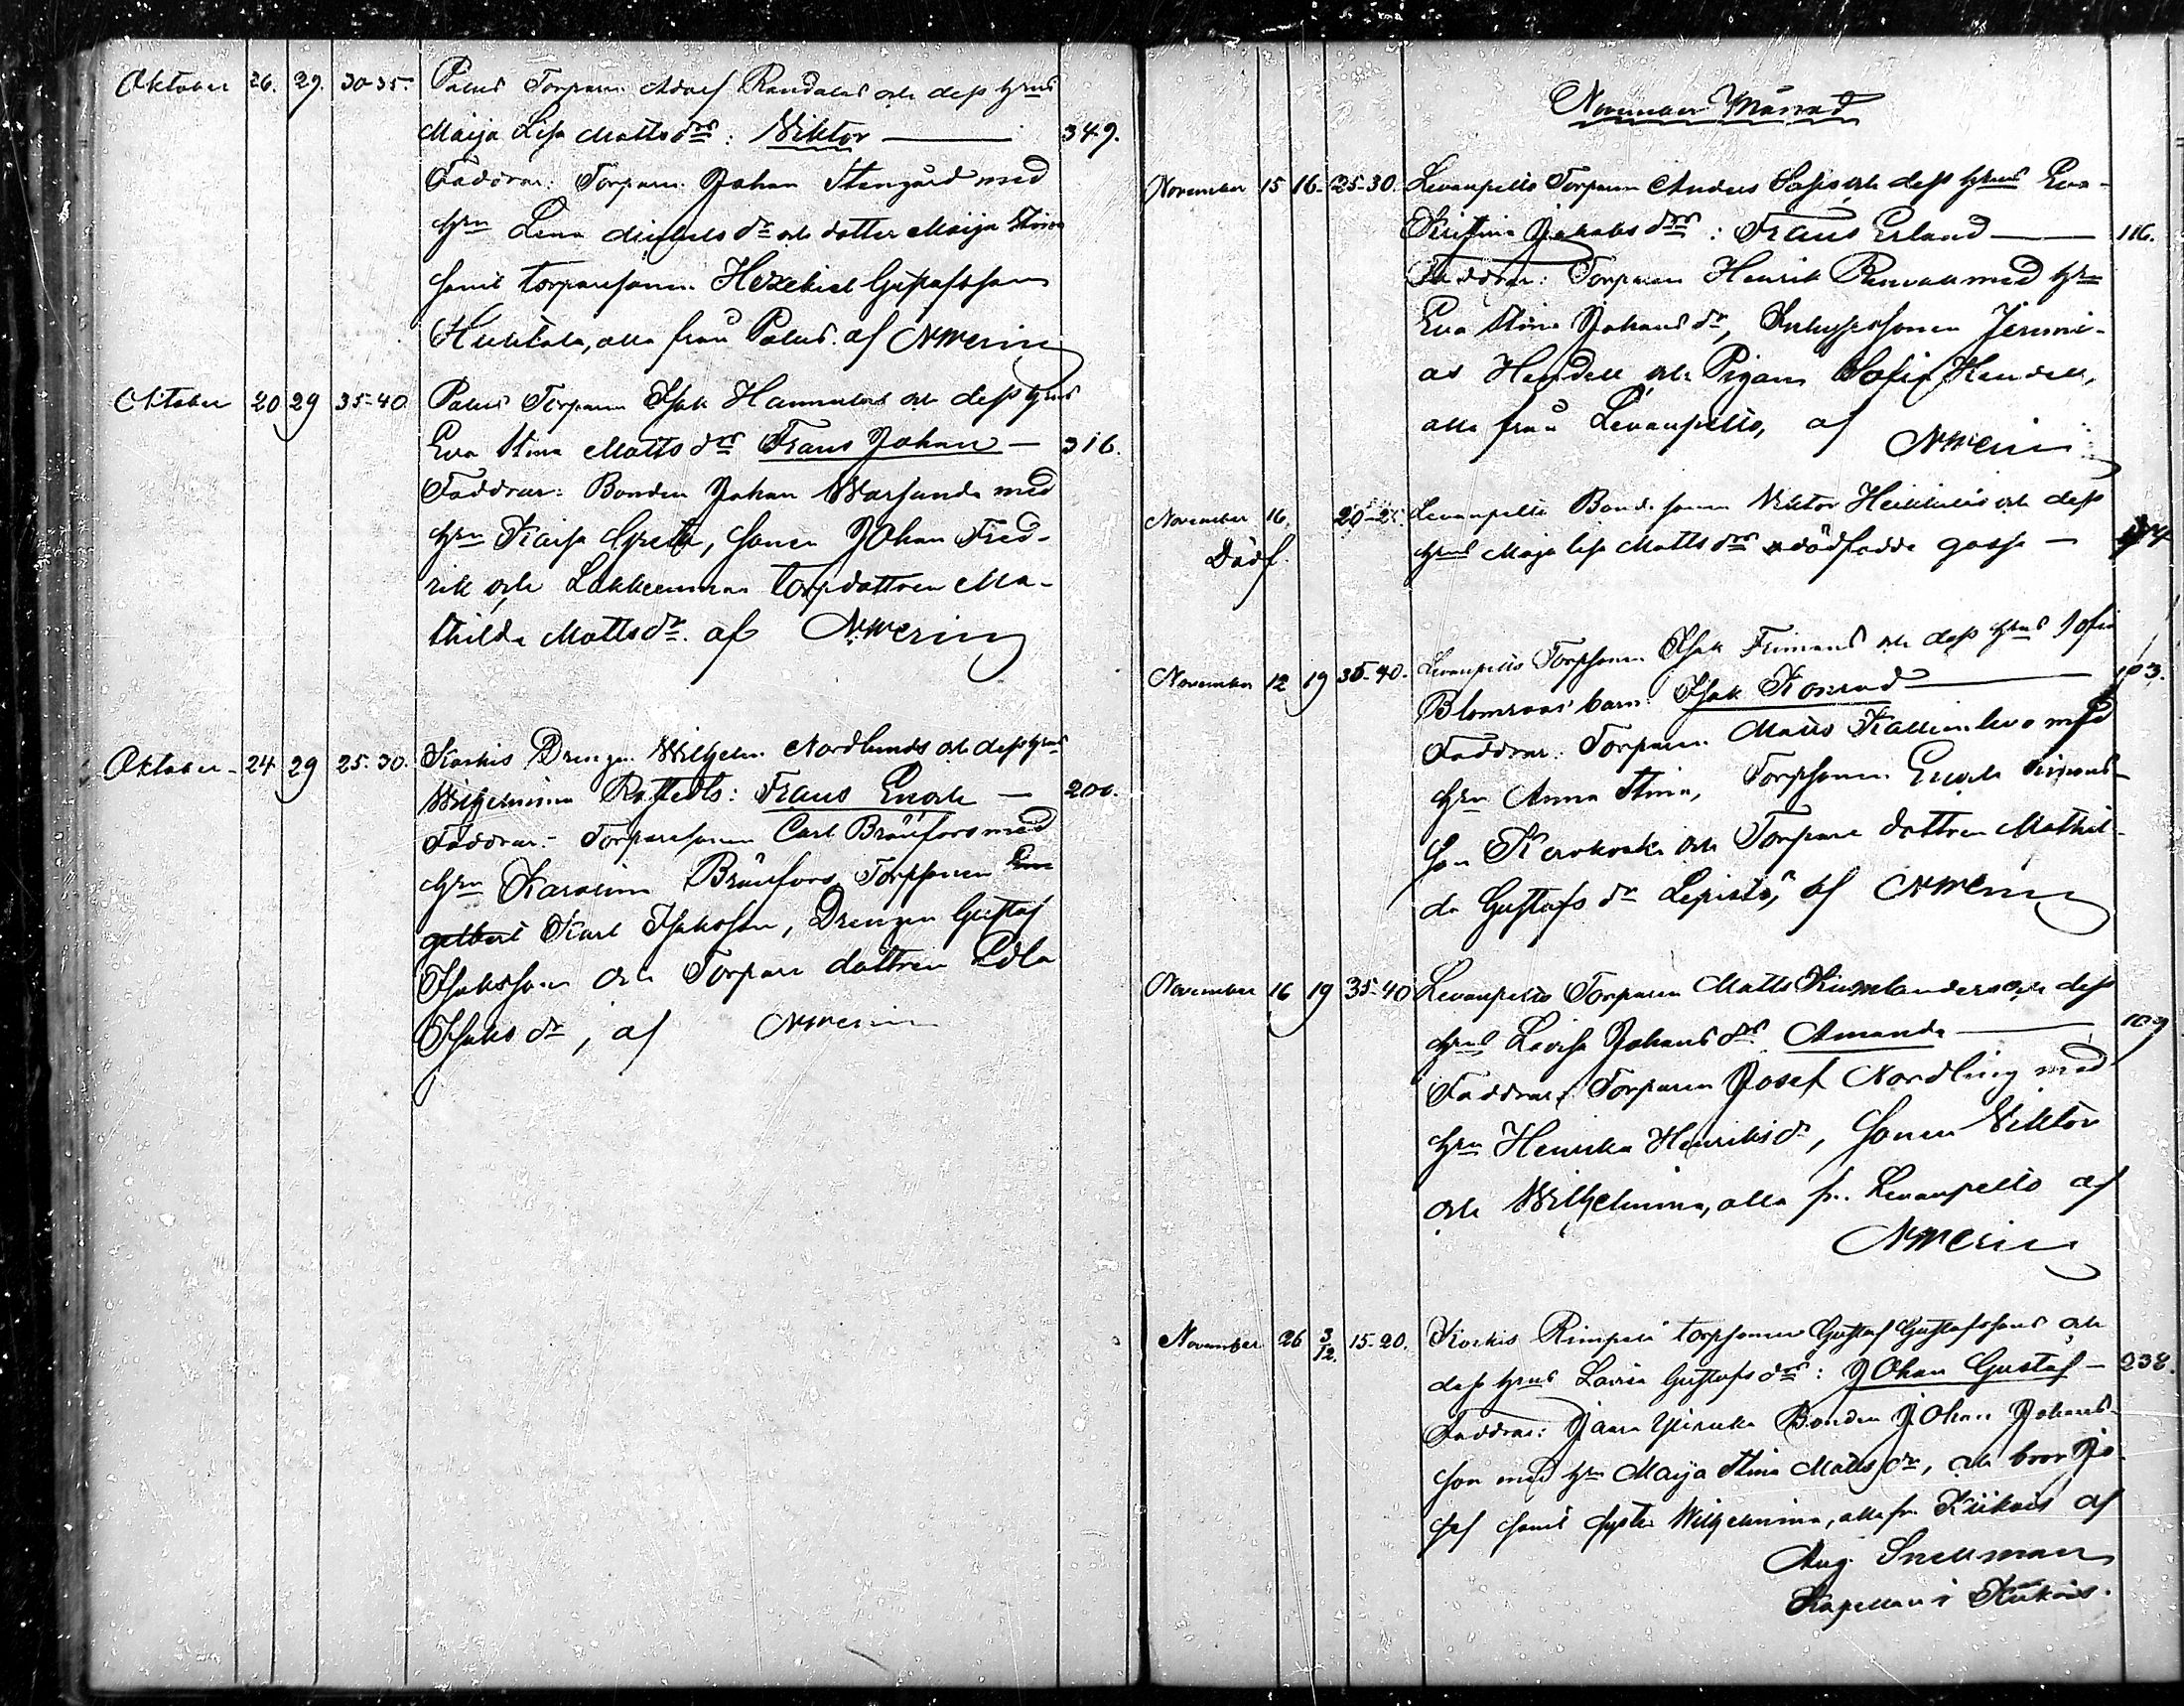 Oktober 26. 29. 30-35. Palus Torparen Adolf Randalas och dess hrus
Maija Lisa Mattsdrs: Viktor — 349.
Faddrar: Torparen Johan Stengård med
hru Lena Michelsdr och dotter Maija Stina
samt torparesonen Hezekiel Gustafsson
Huktala, alla från Palus. af NMerin
Oktober 20 29 35-40 Palus Torparen Isak Hannulas och dess hrus
Eva Stina Mattsdrs Frans Johan — 316.
Faddrar: Bonden Johan Warsunda med
hru Kaisa Greta, sonen Johan Fred-
rik och torpdottren Ma-
thilda Mattsdr. af NMerin
Oktober 24 29 25-30. Koskis Drengen Wilhelm Nordlunds och dess hrus
Wilhelmina : Frans Enok — 200.
Faddrar: Torparesonen Carl Brunfors med
hru Karolina Brunfors, Torpsonen
Karl Isaksson, Drengen Gustaf
Isaksson och Torpare dottren Edla
Isaksdr, af NMerin
November Månad
November 15 16. 25-30. Levanpelto Torparen Anders och dess hrus Eva
Kristina Jakobsdrs: Frans Erland — 116.
Faddrar: Torparen Henrik Renvall med hru
Eva Stina Johansdr, Inhysessonen Jeremi-
as Hendell och Pigan Sofia Hendell,
alla från Levanpelto, af NMerin
November 16. 20-25. Levanpelto Bondesonen Viktor Heikkiläs och dess
Dödf. hrus Maja Lisa Mattsdrs dödfödde gosse —
November 12 19 35-40. Levanpelto Torpsonen Isak Frimans och dess hrus Sofia
Blomroos' barn: Isak Konrad — 103.
Faddrar: Torparen Matts med
hru Anna Stina, Torpsonen Enok Simons-
son och Torpare dottren Mathil-
da Gustafsdr Lepistö, af NMerin
November 16 19 35-40 Levanpelto Torparen Matts Kumlanders och dess
hrus Lovisa Johansdrs Amanda — 109
Faddrar: Torparen Josef Nordling med
hru Henrika Henriksdr, sonen Viktor
och Wilhelmina, alla fr. Levanpelto af
NMerin
November 26 3/12. 15-20. Koskis Rimpelä torpsonen Gustaf Gustafssons och
dess hrus Lovisa Gustafsdrs: Johan Gustaf — 238.
Faddrar: Bonden Johan Johans-
son med hru Maija Stina Mattsdr, och bror Jo-
sef samt syster Wilhelmina, alla fr. Kiikois af
Aug. Snellman
Kapellan i Kiikois.